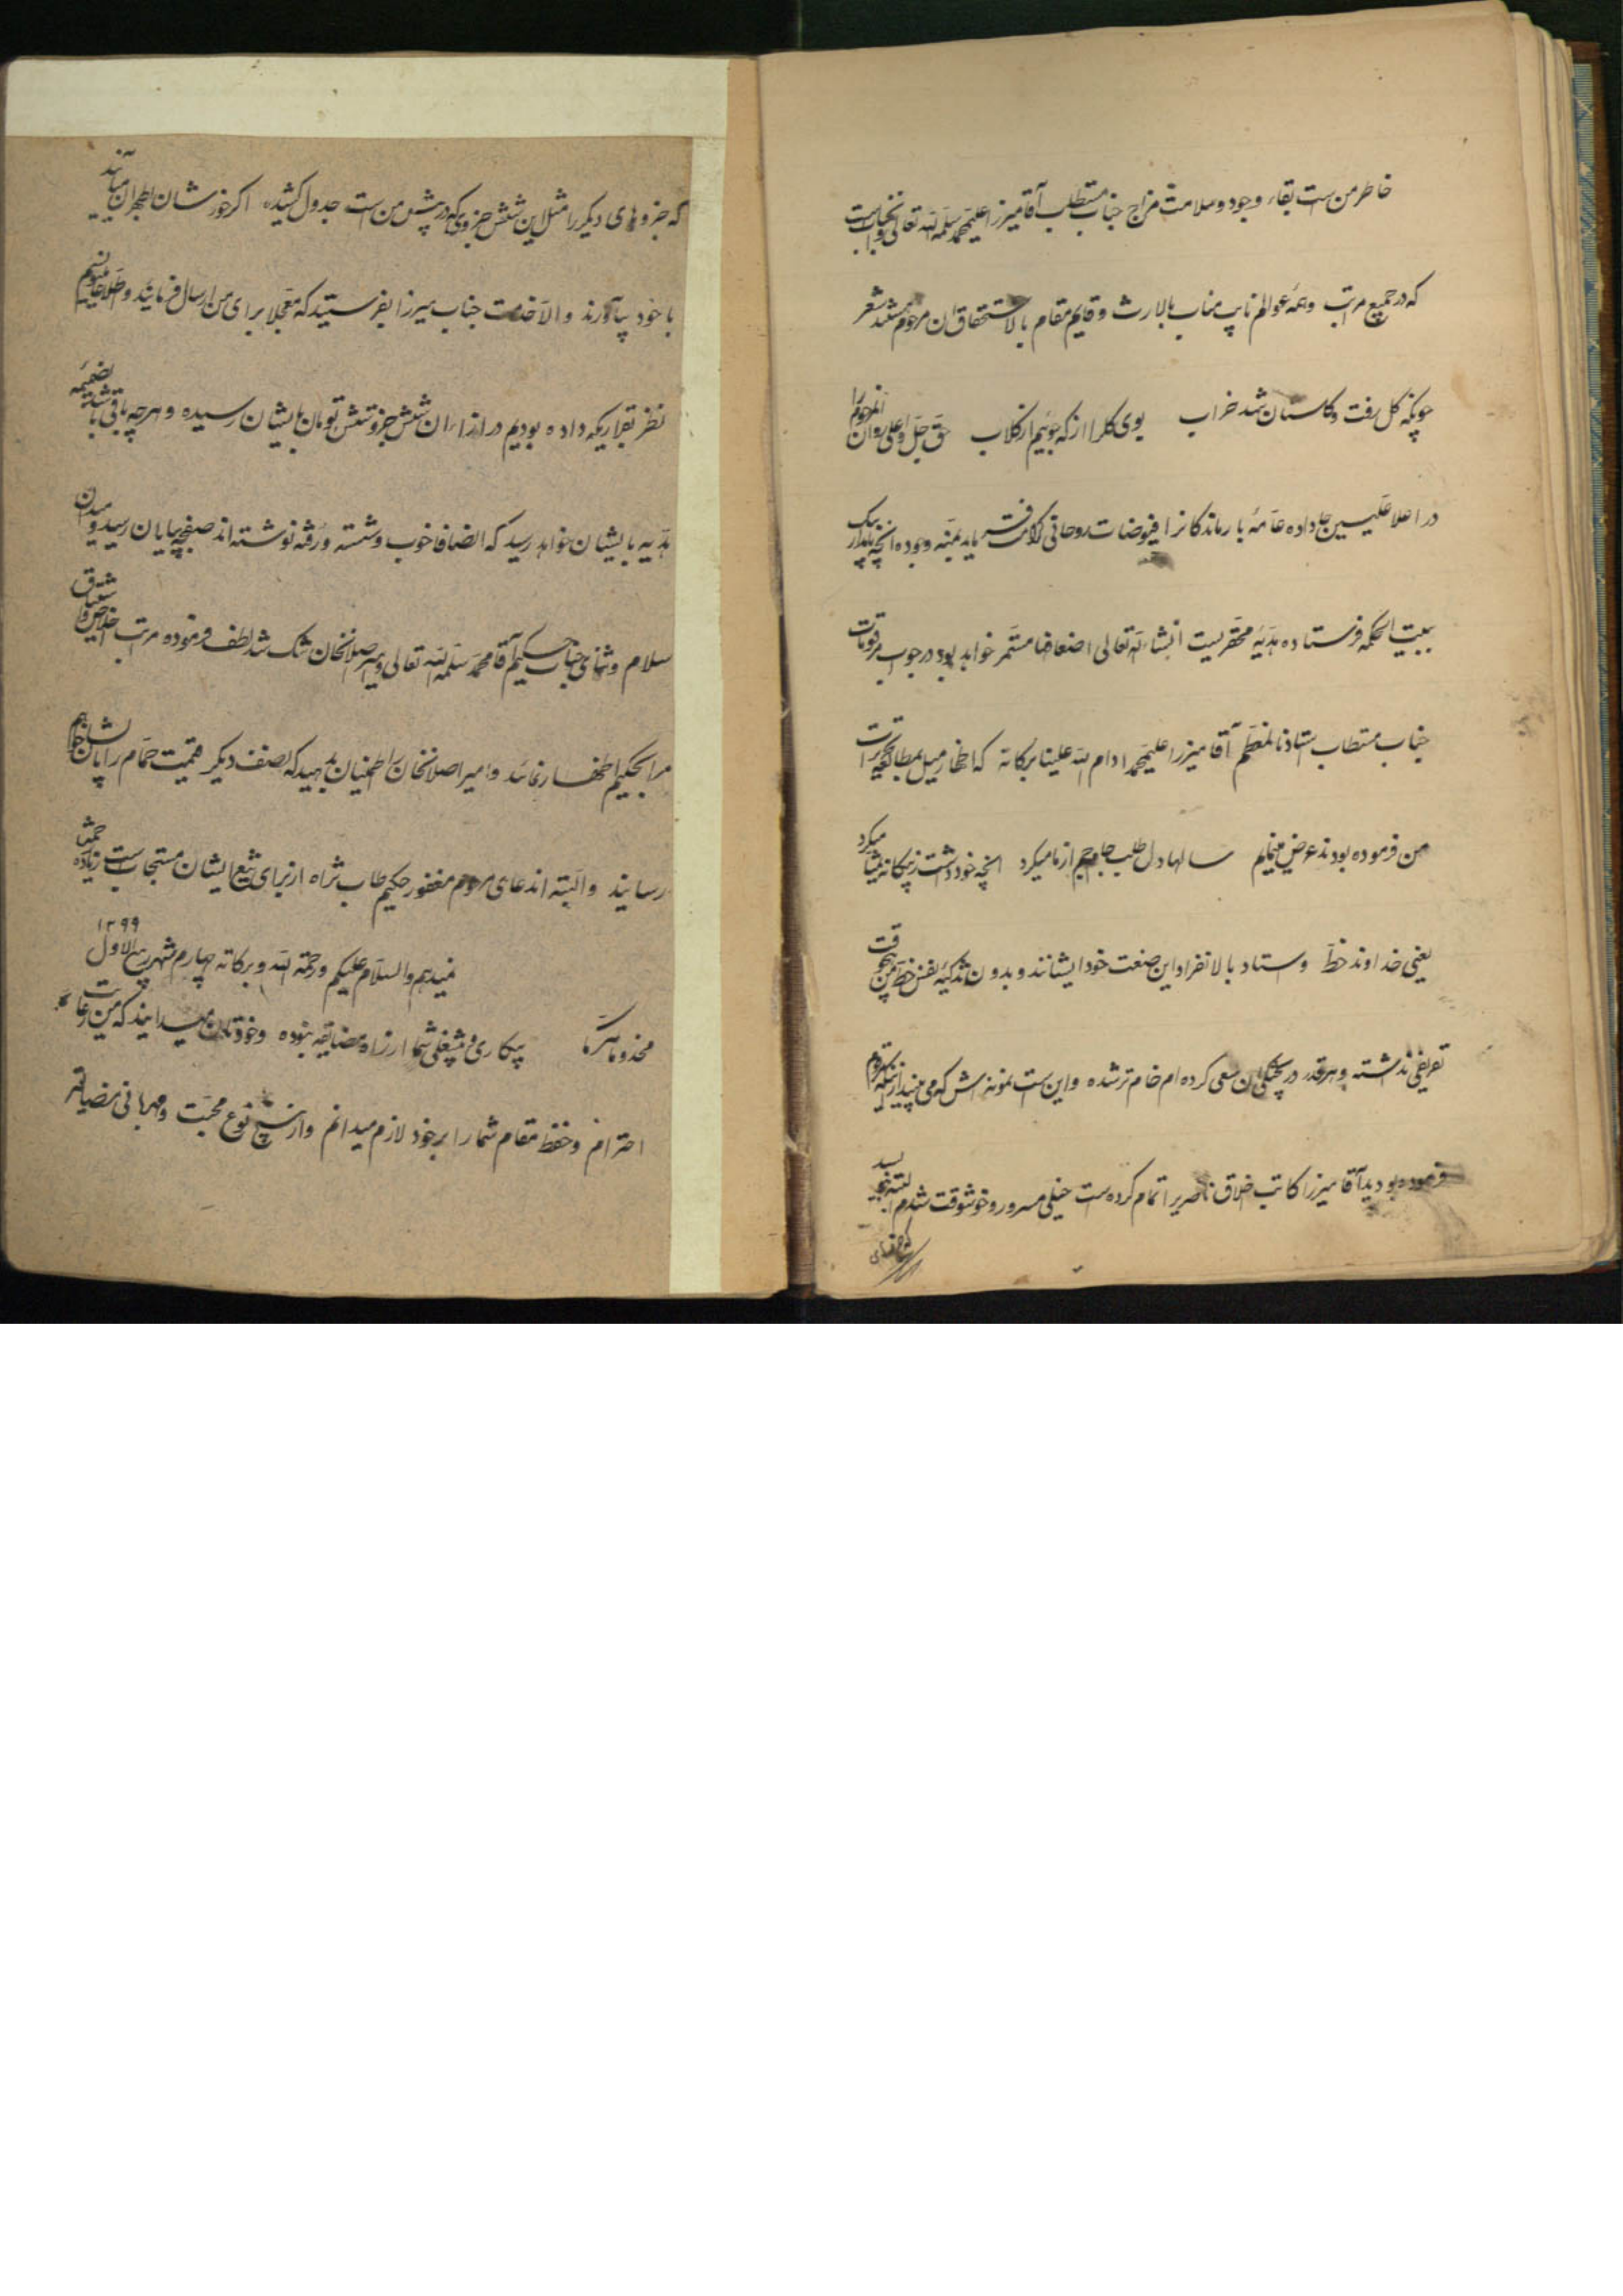 خاطر من است بقاء وجود و سلامت مزاج جناب مستطاب آقا میرزا علیمحمد سلمه الله تعالی
که در جمیع مراتب و همه عوالم نایب مناب بالارث و قایم مقام بالاستحقاق ان مرحوم هستند شعر
چونکه گل رفت و گلستان شد خراب بوی گل را از که جوئیم از گلاب حق جل و اعلی روان انمرحوم را
در اعلا علیین جا داده عامهٔ بازماندگانرا فیوضات روحانی کرامت فرماید بمنه وجوده انچه
ببیت الحکمه فرستاده هدیهٔ محقریست انشاء الله تعالی اضعافها مستمر خواهد بود در جواب مرقومات
جناب مستطاب استاذنا المعظم آقا میرزا علیمحمد ادام الله علینا برکاته که اظهار میل بمطالعه تحریرات
من فرموده بودند عرض مینمایم سالها دل طلب جام جم از ما میکرد انچه خود داشت ز بیگانه تمنا میکرد
یعنی خداوند خط و استاد بالانفراد این صنعت خود ایشانند و بدون تزکیهٔ نفس خط من هیچوقت
تعریفی نداشته و هر قدر در پختگی ان سعی کرده ام خام تر شده و این است نمونه اش که می بینید
فرموده بودید آقا میرزا کاتب اخلاق ناصری را تمام کرده است خیلی مسرور و خوشوقت شدم البته
که جزوهای دیگر را مثل این شش جزوی که در پیش من است جدول کشیده اگر خودشان بطهران میآیند
با خود بیاورند و الا خدمت جناب میرزا بفرستید که معجلا برای من ارسال فرمایند و
نظر بقراریکه داده بودیم در ازاء ان شش جزو شش تومان بایشان رسیده و هر چه باقی باشد بضمیمه
هدیه بایشان خواهد رسید که انصافا خوب و شسته ورفته نوشته اند صفحه بپایان رسید و
سلام و ثنای جناب حکیم آقا محمد سلمه الله تعالی و میر اصلانخان شد لطف فرموده مراتب اخلاص و اشتیاق
مرا بحکیم اظهار نمائید و امیر اصلانخان را اطمینان بدهید که نصف دیگر قیمت حمام را بایشان خواهم
رسانید و البته اند عای مرحوم مغفور حکیم طاب ثراه از برای ایشان مستجاب است زیاده زحمت
نمیدهم والسلام علیکم ورحمة الله وبرکاته چهارم شهر ربیع الاول ۱۲۹۹
مخدوما مکرما بیکاری و بیشغلی شما از راه مضایقه نبوده و خودتان میدانید که من رعایت
احترام و حفظ مقام شما را بر خود لازم میدانم و از هیچ نوع محبت و مهربانی مضایقه